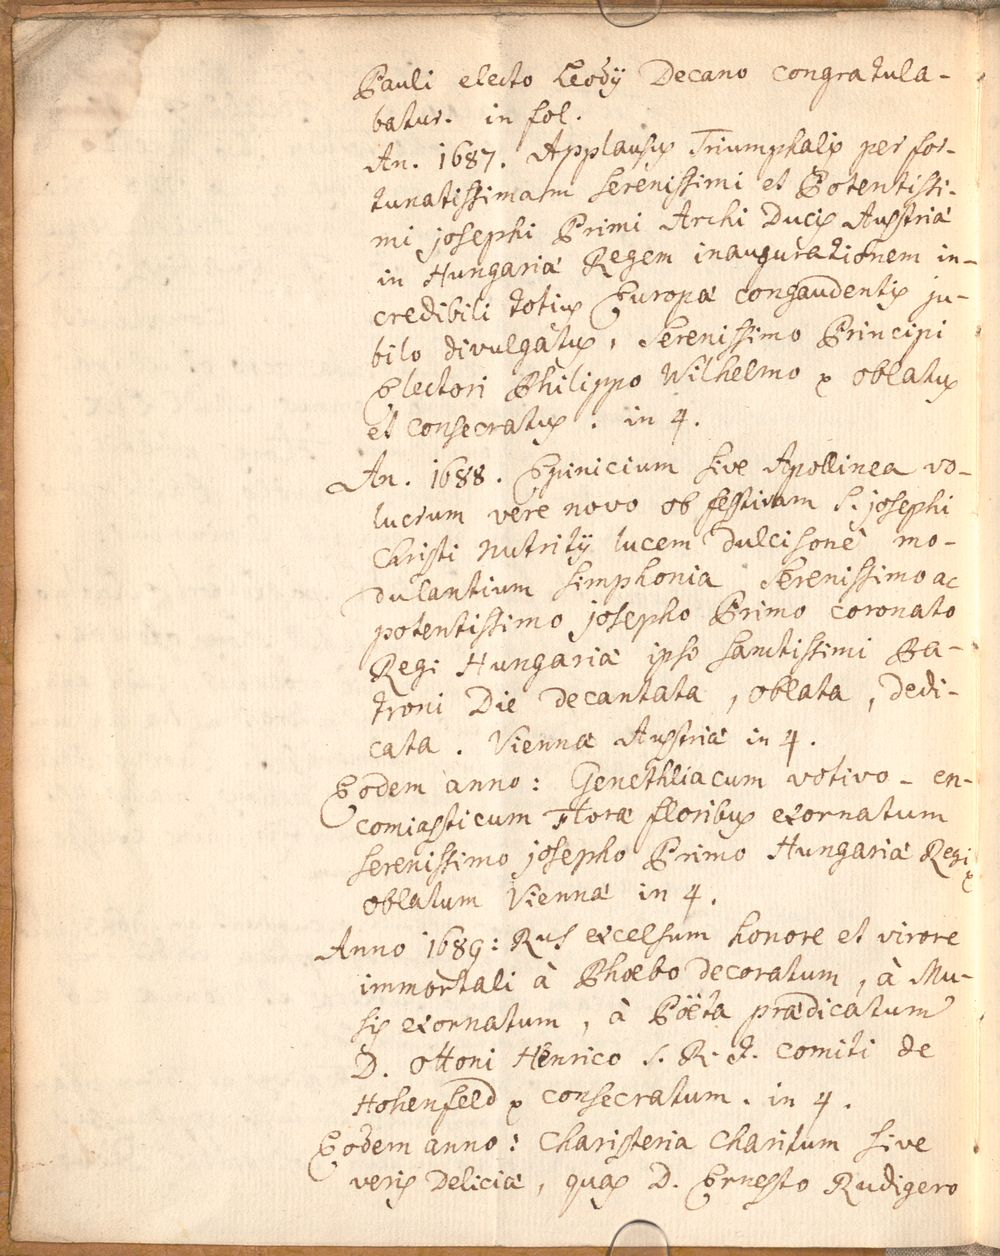 Pauli electo Leodij Decano congratula-
batur. in fol.
An. 1687. Applausus Triumphalis per for-
tunatissimam Serenissimi et Potentissi-
mi josephi Primi Archi Ducis Austriæ
in Hungariæ Regem inaugurationem in-
credibili totius Europæ congaudentis ju-
bilo divulgatus, Serenissimo Principi
Electori Philippo Wilhelmo x oblatus
et consecratus. in 4.
An. 1688. Epinicium sive Apollinea vo-
lucrum vere novo ob festivam S. josephi
Christi Nutritij lucem dulcisonè mo-
dulantium simphonia Serenissimo ac
potentissimo josepho Primo coronato
Regi Hungariæ ipso sanctissimi Pa-
troni Die decantata, oblata, dedi-
cata. Viennæ Austriæ in 4.
Eodem anno: Genethliacum votivo-en-
comiasticum Floræ floribus exornatum
serenissimo josepho Primo Hungariæ Regi x
oblatum Viennæ in 4.
Anno 1689: Rus excelsum honore et virore
immortali à Phœbo decoratum, à Mu-
sis exornatum, à Pöëta prædicatum
D. Ottoni Henrico S. R. J. comiti de
Hohenfeld x consecratum. in 4.
Eodem anno: Charisteria Charitum sive
veris Deliciæ, quas D. Ernesto Rudigero